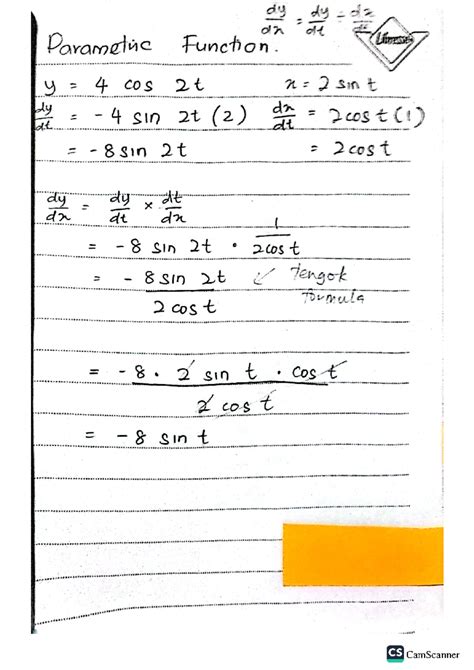 dy/dx = dy/dt ÷ dx/dt
Parametric Function.
y = 4 cos 2t x = 2 sin t
dy/dt = -4 sin 2t (2) dx/dt = 2cos t (1)
= -8 sin 2t = 2cos t
dy/dx = dy/dt × dt/dx
= -8 sin 2t · 1/2cos t
= -8 sin 2t / 2 cos t ✓ tengok formula
= -8 · 2 sin t · cos t / 2 cos t
= -8 sin t
CS CamScanner